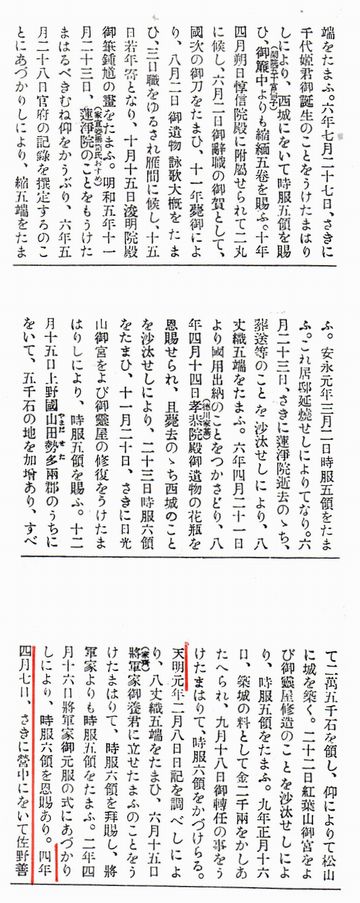 端をたまふ。六年七月二十七日、さきに
千代姬君御誕生のことをうけたまはり
しにより、西城にをいて時服五領を賜
ひ、御簾中よりも縮緬五卷を賜ふ。十年
四月朔日惇信院殿に附屬せられて二丸
に候し、六月二日御辭職の御賀として、
國次の御刀をたまひ、十一年薨御によ
り、八月二日御遺物詠歌大槪をたま
ひ、三日職をゆるされ雁間に候し、十五
日若年寄となり、十月十五日浚明院殿
御筆鍾馗の畫をたまふ。明和五年十一
月二十三日、蓮淨院のことをもうけた
まはるべきむね仰をかうぶり、六年五
月二十八日官府の記錄を撰定するのこ
とにあづかりしにより、縮五端をたま
ふ。安永元年三月二日時服五領をたま
ふ。これ居邸延燒せしによりてなり。六
月二十三日、さきに蓮淨院逝去のゝち、
葬送等のことを沙汰せしにより、八
丈織五端をたまふ。六年四月二十一日
より國用出納のことをつかさどり、八
年四月十四日孝恭院殿御遺物の花瓶を
恩賜せられ、且薨去のゝち西城のこと
を沙汰せしにより、二十三日時服六領
をたまひ、十一月二十日、さきに日光
山御宮をよび御靈屋の修復をうけたま
はりしにより、時服五領を賜ふ。十二
月十五日上野國山田勢多兩郡のうちに
をいて、五千石の地を加增あり、すべ
て二萬五千石を領し、仰によりて松山
に城を築く。二十二日紅葉山御宮をよ
び御靈屋修造のことを沙汰せしによ
り、時服五領をたまふ。九年正月十六
日、築城の料として金二千兩をかしあ
たへられ、九月十八日御轉任の事をう
けたまはりて、時服六領をかづけらる。
天明元年二月八日日記を調べしによ
り、八丈織五端をたまひ、六月十五日
將軍家御養君に立せたまふのことをう
けたまはりて、時服六領を拜賜し、將
軍家よりも時服五領をたまふ。二年四
月十六日將軍家御元服の式にあづかり
しにより、時服六領を恩賜あり。四年
四月七日、さきに營中にをいて佐野善